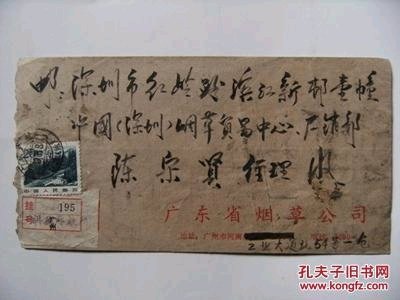 邮:深圳市红岭路滨江新邨壹幢
中国(深圳)烟草贸易中心.产销部
陈宗贤 经理 收
中国人民邮政
挂号 195
广州
广东省烟草公司
地址:广州市河南
工业大道北54号一仓
孔夫子旧书网